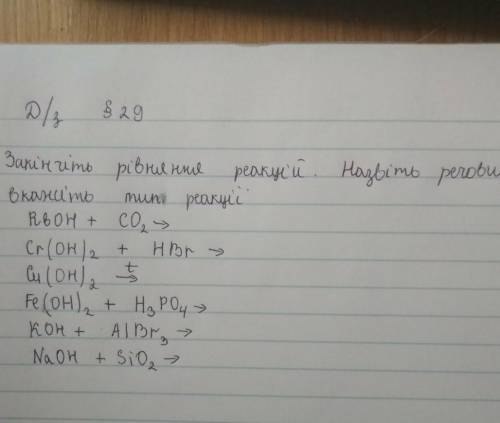 Д/з § 29
Закінчіть рівняння реакцій. Назвіть речови
вкажіть тип реакції
RbOH + CO₂ →
Cr(OH)₂ + HBr →
Cu(OH)₂ t→
Fe(OH)₂ + H₃PO₄ →
KOH + AlBr₃ →
NaOH + SiO₂ →